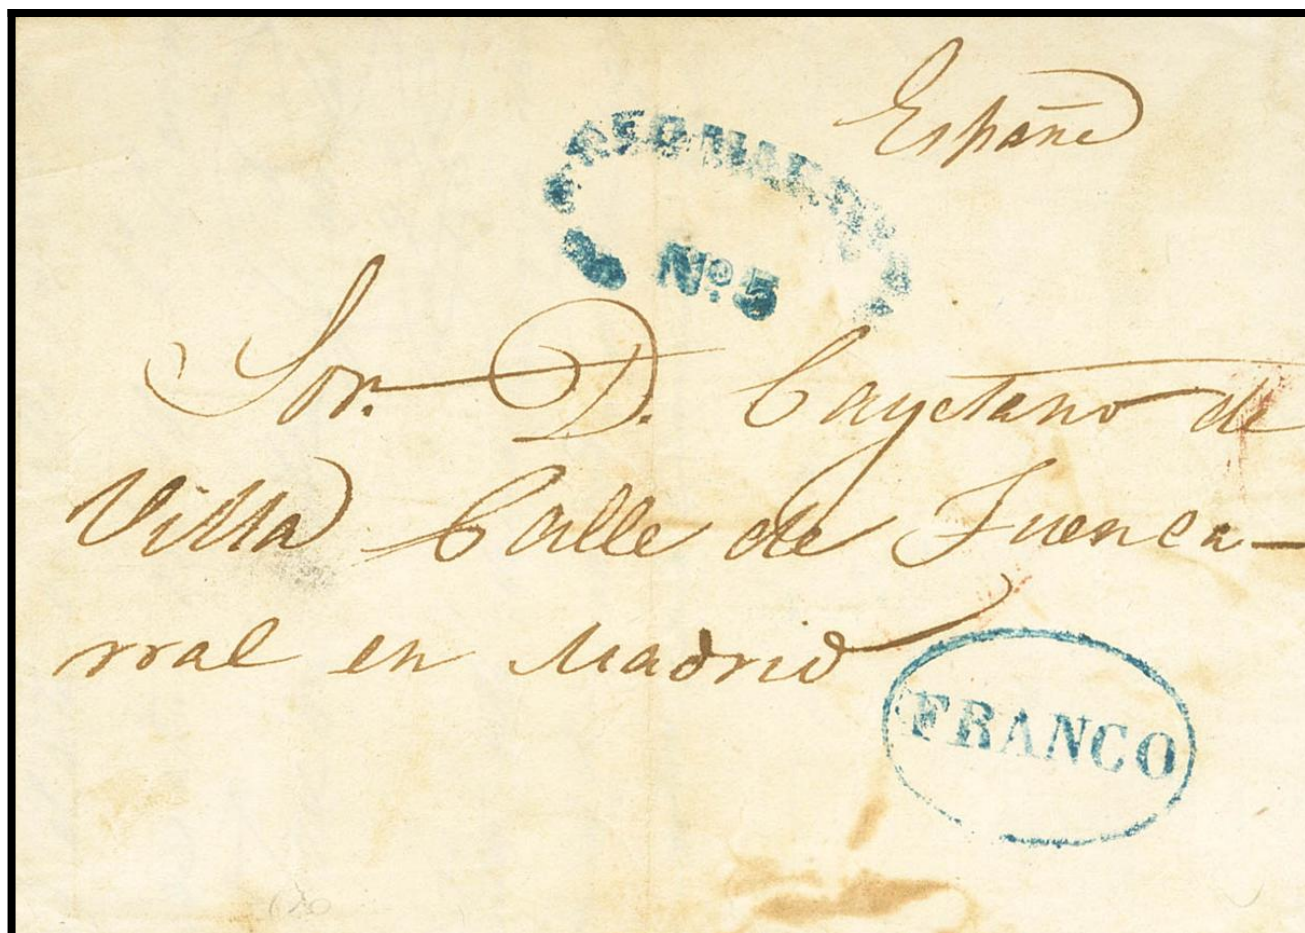 España
Nº 5
Sor. D. Cayetano de
Villa Calle de Fuenca-
rral en Madrid
FRANCO